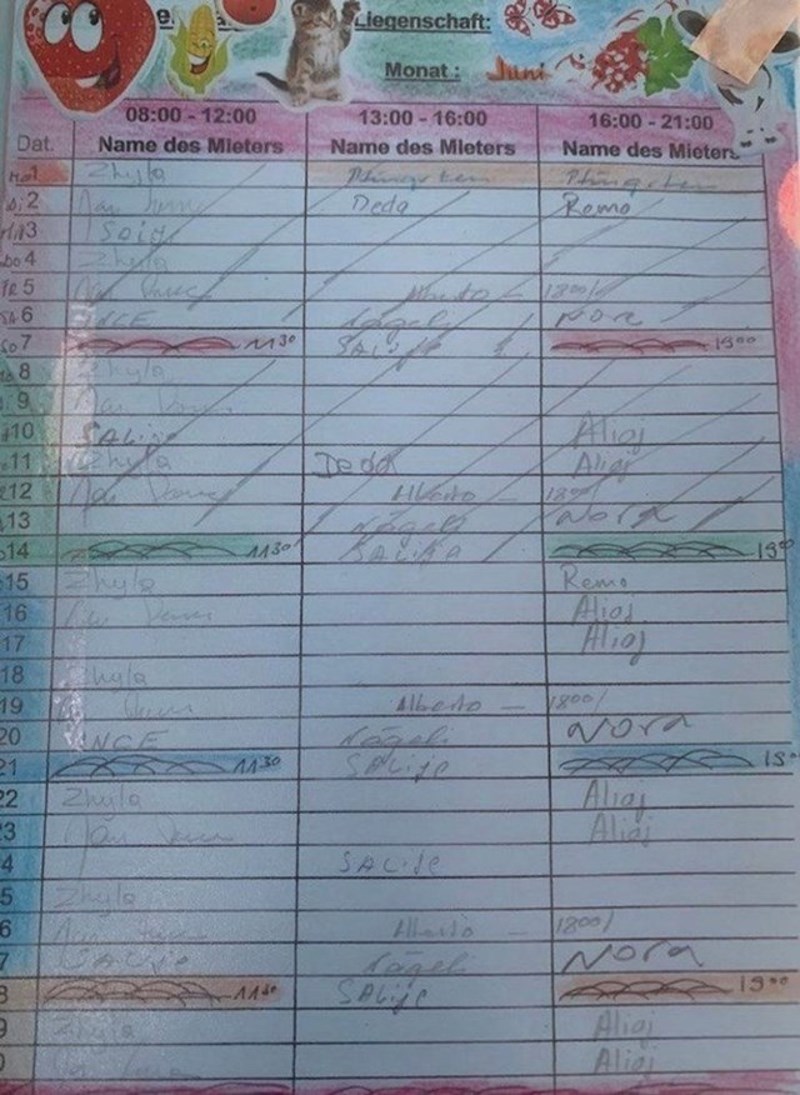 Liegenschaft:
Monat: Juni
08:00 - 12:00 13:00 - 16:00 16:00 - 21:00
Dat. Name des Mieters Name des Mieters Name des Mieters
Mo1 Zhyla Pfingsten Pfingsten
Di2 Deda Remo
3 Salije
Do4 Zhyla
FR5 Alberto – 1800/
SA6 NCE Nägeli Nora
So7 1130 SALIJE 1900
8 Zhyla
9
10 SALije Aliaj
11 Zhyla Deda Aliaj
12 Alberto – 1800/
13 Nägeli Nora
14 1130 SALIJA 1900
15 Zhyla Remo
16 Aliaj
17 Aliaj
18 Zhyla
19 Alberto – 1800/
20 NCE Nägeli Nora
21 1130 SALije
22 Zhyla Aliaj
23 Aliaj
4 SALIJE
5 Zhyla
6 Alberto – 1800/
7 SALije Nägeli Nora
8 1130 SALije 1900
9 Zhyla Aliaj
0 Aliaj